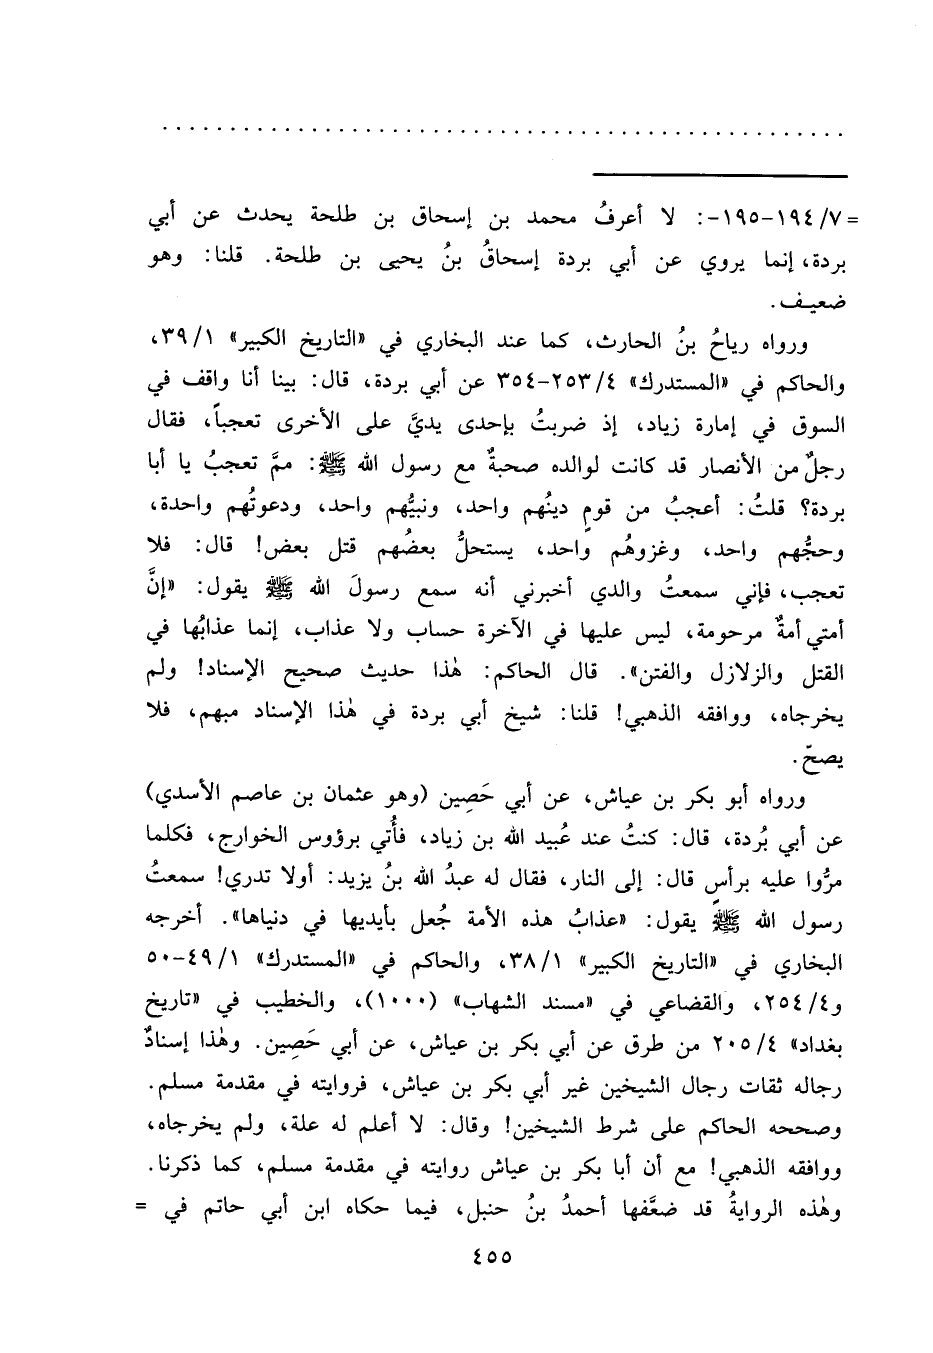 = ٧/ ١٩٤-١٩٥-: لا أعرفُ محمد بن إسحاق بن طلحة يحدث عن أبي
بردة، إنما يروي عن أبي بردة إسحاقُ بنُ يحيى بن طلحة. قلنا: وهو
ضعيف.
ورواه رياحُ بنُ الحارث، كما عند البخاري في «التاريخ الكبير» ١/ ٣٩،
والحاكم في «المستدرك» ٤/ ٢٥٣-٣٥٤ عن أبي بردة، قال: بينا أنا واقف في
السوق في إمارة زياد، إذ ضربتُ بإحدى يديَّ على الأخرى تعجباً، فقال
رجلٌ من الأنصار قد كانت لوالده صحبةٌ مع رسول الله ﷺ: ممَّ تعجبُ يا أبا
بردة؟ قلتُ: أعجبُ من قومٍ دينُهم واحد، ونبيُّهم واحد، ودعوتُهم واحدة،
وحجُّهم واحد، وغزوهُم واحد، يستحلُّ بعضُهم قتل بعض! قال: فلا
تعجب، فإني سمعتُ والدي أخبرني أنه سمع رسولَ الله ﷺ يقول: «إنَّ
أمتي أمةٌ مرحومة، ليس عليها في الآخرة حساب ولا عذاب، إنما عذابُها في
القتل والزلازل والفتن». قال الحاكم: هٰذا حديث صحيح الإسناد! ولم
يخرجاه، ووافقه الذهبي! قلنا: شيخ أبي بردة في هٰذا الإسناد مبهم، فلا
يصحّ.
ورواه أبو بكر بن عياش، عن أبي حَصِين (وهو عثمان بن عاصم الأسدي)
عن أبي بُردة، قال: كنتُ عند عُبيد الله بن زياد، فأُتي برؤوس الخوارج، فكلما
مرُّوا عليه برأسٍ قال: إلى النار، فقال له عبدُ الله بنُ يزيد: أولا تدري! سمعتُ
رسول الله ﷺ يقول: «عذابُ هذه الأمة جُعل بأيديها في دنياها». أخرجه
البخاري في «التاريخ الكبير» ١/ ٣٨، والحاكم في «المستدرك» ١/ ٤٩-٥٠
و٤/ ٢٥٤، والقضاعي في «مسند الشهاب» (١٠٠٠)، والخطيب في «تاريخ
بغداد» ٤/ ٢٠٥ من طرق عن أبي بكر بن عياش، عن أبي حَصِين. وهٰذا إسنادٌ
رجاله ثقات رجال الشيخين غير أبي بكر بن عياش، فروايته في مقدمة مسلم.
وصححه الحاكم على شرط الشيخين! وقال: لا أعلم له علة، ولم يخرجاه،
ووافقه الذهبي! مع أن أبا بكر بن عياش روايته في مقدمة مسلم، كما ذكرنا.
وهٰذه الروايةُ قد ضعَّفها أحمدُ بنُ حنبل، فيما حكاه ابن أبي حاتم في =
٤٥٥